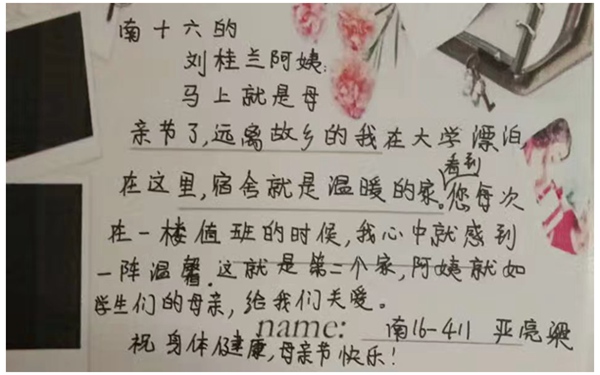 南十六的
刘桂兰阿姨:
马上就是母
亲节了,远离故乡的我在大学漂泊
在这里,宿舍就是温暖的家。看到您每次
在一楼值班的时候,我心中就感到
一阵温馨。这就是第二个家,阿姨就如
学生们的母亲,给我们关爱。
name: 南16-411 亚亮梁
祝身体健康,母亲节快乐!